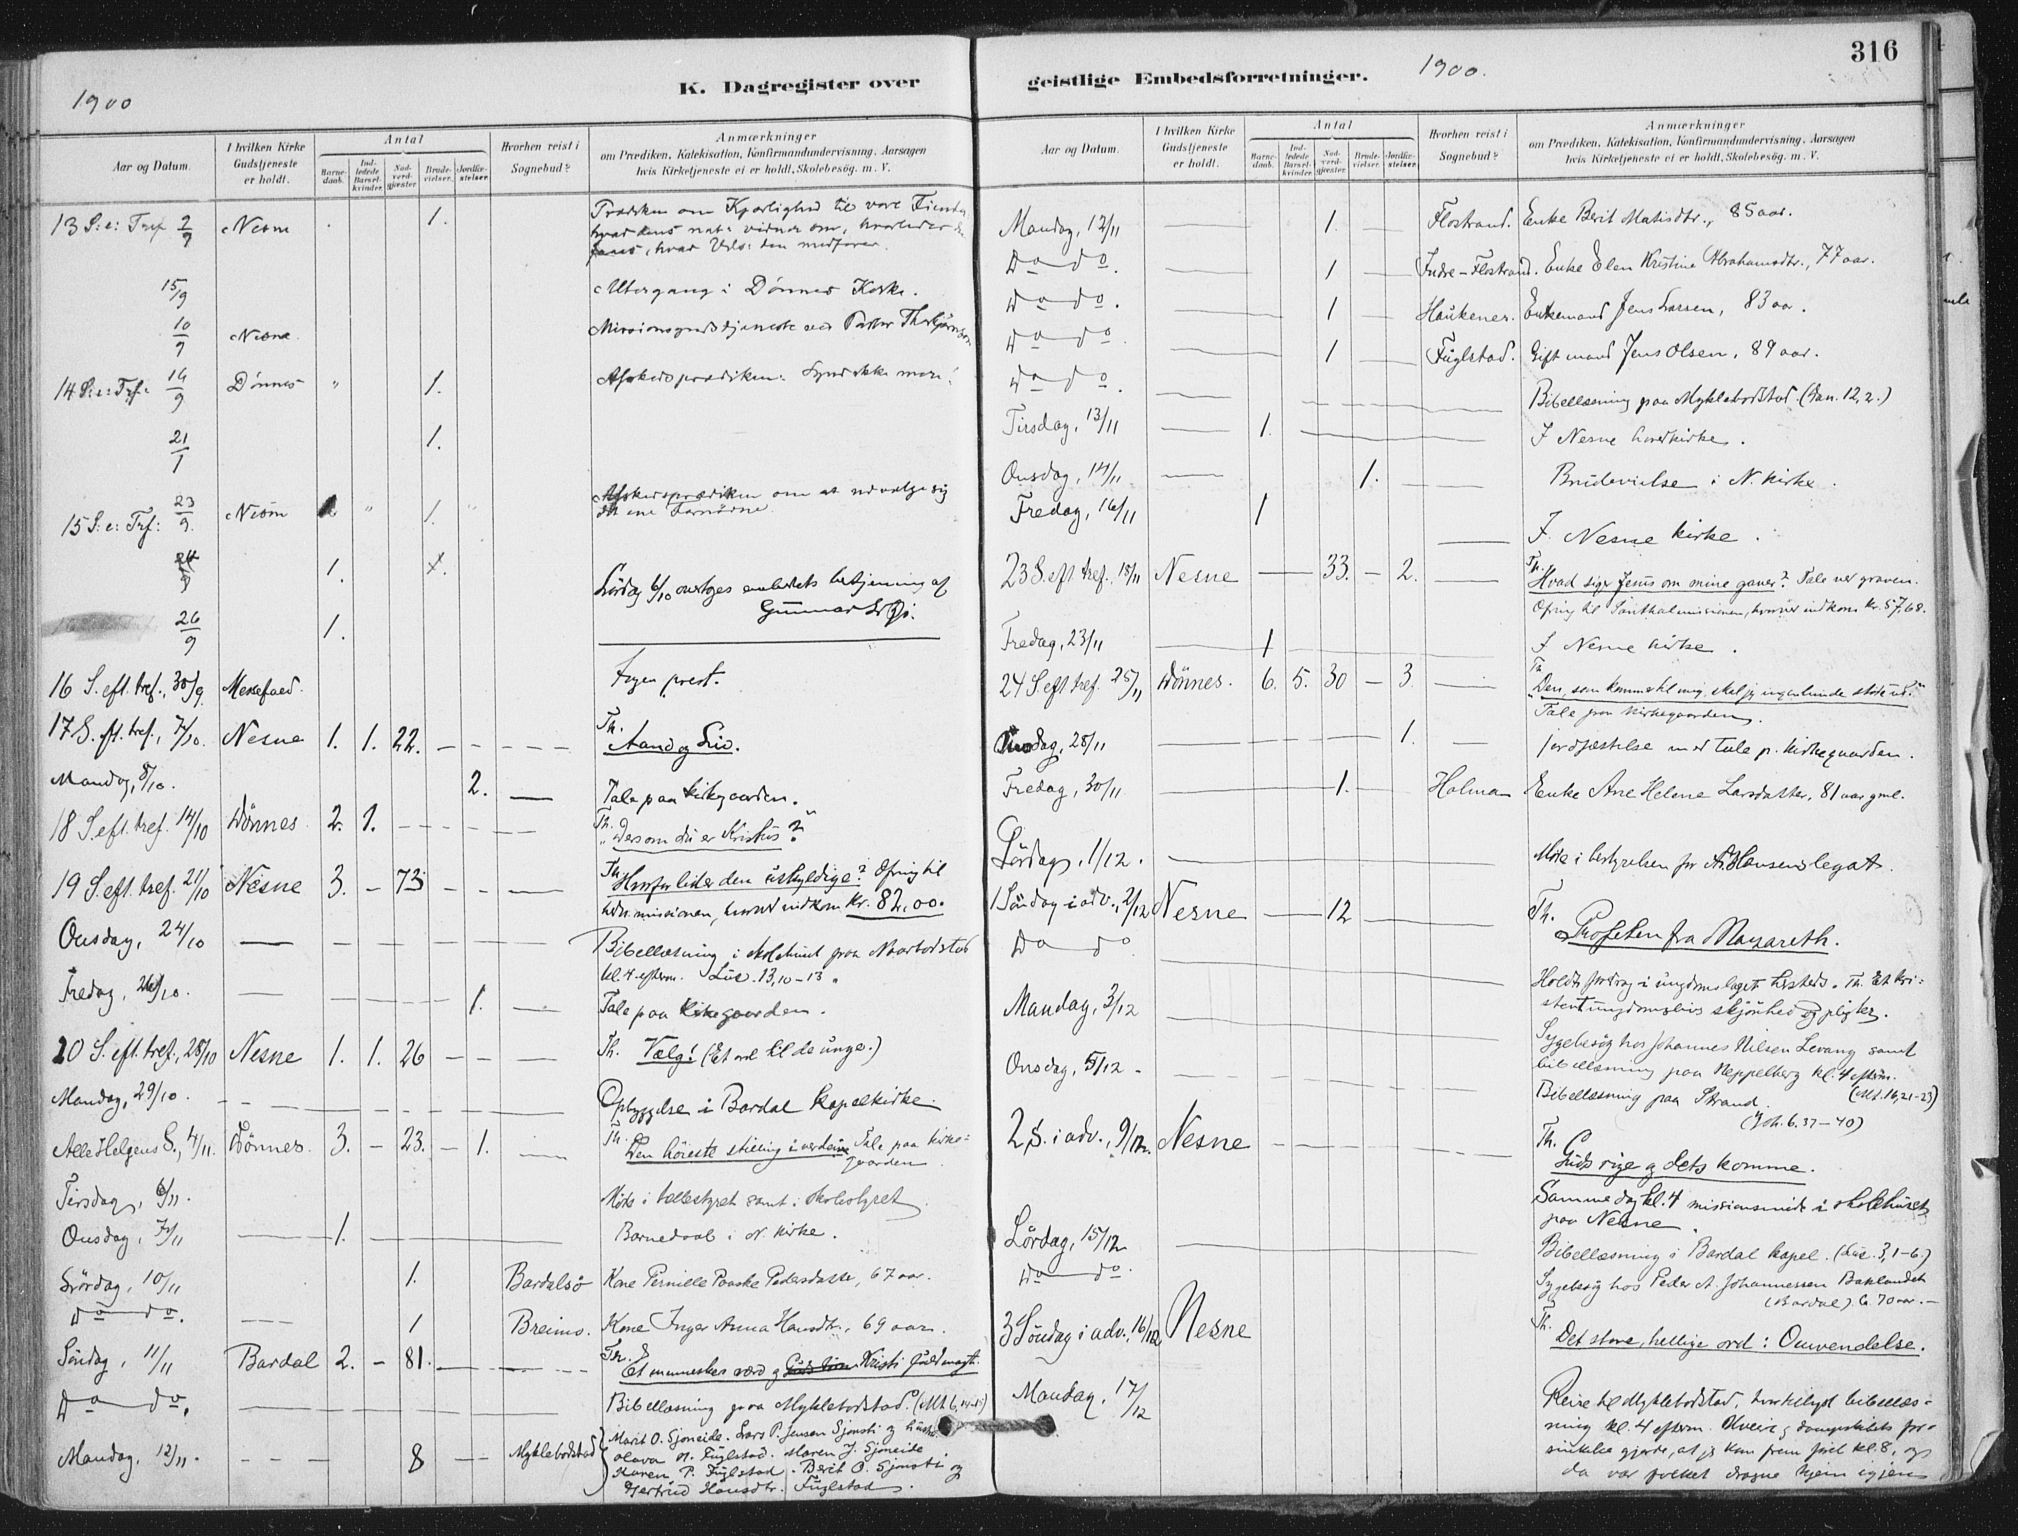 316
1900
1900.
K. Dagregister over geistlige Embedsforretninger.
Aar og Datum.
I hvilken Kirke Gudstjeneste er holdt.
Antal
Barne-daab.
Ind-ledede Barsel-kvinder.
Nad-verd-gjæster
Brude-vielser.
Jordfæ-stelser.
Hvorhen reist i Sognebud?
Anmærkninger
om Prædiken, Katekisation, Konfirmandundervisning, Aarsagen
hvis Kirketjeneste ei er holdt, Skolebesög. m. V.
13 S: e: Tref 2/9 Nesne 1. Prædiken om Kjærlighed til vore Fiender
15/9 i Dönnes Kirke.
10/9 Nesne. Missionsgudstjeneste ved Pastor
14 S: e: Tref: 16/9 Dönnes " 1. Afskedsprædiken: Synd ikke mere!
21/ 1.
15 S: e: Tref: 23/9 Nesne " 1. Afskedsprædiken om at udvælge sig
det ene Fornødne.
24/9 1.
Lördag 6/10 overtages embedets betjening af
Gunnar
26/9 1.
16 S. eft. tref., 30/9. Messefald. Ingen prest.
17 S. eft. tref., 7/10. Nesne 1. 1. 22. Th.
Aand og Liv.
Mandag, 8/10. 2. Tale paa kirkegaarden.
18 S. eft. tref. 14/10 Dönnes 2. 1. Th.
"Dersom du er Kristus?"
19 S. eft. tref. 21/10 Nesne 3. - 73 Th. Hvorfor lider den uskyldige? Ofring til
missionen, hvorved indkom Kr. 82,00.
Onsdag, 24/10 Bibellæsning i skolehuset paa Naarbodstad
kl. 4 efterm. Luc. 13,10-13
Fredag, 26/10. 1. Tale paa Kirkegaarden.
20 S. eft. tref., 28/10 Nesne 1. 1. 26 Th. Vælg! (Et ord til de unge.)
Mandag, 29/10. Opbyggelse i Bardal kapelkirke.
Alle Helgens S., 4/11. Dönnes. 3. - 23. - 1. Th. Den höieste stilling i verden. Tale paa kirke-
gaarden.
Tirsdag, 6/11. Möde i fattigstyret samt i skolestyret.
Onsdag, 7/11 1. Barnedaab i N. kirke.
Lördag, 10/11 1. Bardalsö Kone Pernille Paaske Pedersdatter, 67 aar.
Do do. 1 Breimo. Kone Inger Anna Hansdtr., 69 aar.
Söndag, 11/11 Bardal 2. - 81. Th.
Et menneskes værd og Kristi fuldmagt.
Do do. Bibellæsning paa Myklebodstad.
Mandag, 12/11. 8 Myklebodstad Marit O. Sjoneide. Lars P. Jensen Sjonsti og hustru
Olava N. Fuglstad. Maren J. Sjoneide
Karen P. Fuglstad. Berit O. Sjonsti og
Gertrud Hansdtr. Fuglstad.
Aar og Datum.
I hvilken Kirke Gudstjeneste er holdt.
Antal
Barne-daab.
Ind-ledede Barsel-kvinder.
Nad-verd-gjæster
Brude-vielser.
Jordfæ-stelser.
Hvorhen reist i Sognebud?
Anmærkninger
om Prædiken, Katekisation, Konfirmandundervisning, Aarsagen
hvis Kirketjeneste ei er holdt, Skolebesög. m. V.
Mandag, 12/11 1. Flostrand. Enke Berit Matisdtr., 85 aar.
Do do. 1 Indre-Flostrand. Enke Elen Kristine Abrahamsdtr., 77 aar.
Do do. 1 Haukenes. Enkemand Jens Larsen, 83 aar.
Do do 1 Fuglstad. Gift mand Jens Olsen, 89 aar.
Do do. Bibellæsning paa Myklebodstad. (Dan. 12, 2.)
Tirsdag, 13/11 1. I Nesne hovedkirke.
Onsdag, 14/11 1. Brudevielse i N. kirke.
Fredag, 16/11 1 I Nesne kirke.
23 S. eft tref., 18/11 Nesne 33. - 2. Th.
Hvad siger Jesus om mine gaver? Tale ved graven.
Ofring til Santhalmissionen, hvorved indkom kr. 57,68.
Fredag, 23/11 1 I Nesne kirke.
24 S. eft tref. 25/11 Dönnes. 6. 5. 30 - 3. Th.
"Den, som kommer til mig, skal jeg ingenlunde støde ud."
Tale paa kirkegaarden.
Onsdag, 28/11 1. Jordfæstelse med tale p. kirkegaarden.
Fredag, 30/11 1. Holman Enke Ane Helene Larsdatter, 81 aar gml.
Lördag, 1/12. Möde i bestyrelsen for A. Hansens legat.
1 Söndag i adv., 2/12 Nesne 12 Th.
Profeten fra Nazareth.
Do do Holdt foredrag i ungdomslaget hersteds. Th. Et kri-
stent ungdomslivs skjönhed og pligter.
Mandag, 3/12 Sygebesög hos Johannes Nilsen Levang samt
bibellæsning paa Neppelberg kl. 4 efterm.
(Mt. 16,21-23)
Onsdag, 5/12. Bibellæsning paa Strand.
(Joh. 6. 37-40)
2 S. i adv., 9/12. Nesne Th.
Guds rige og dets komme.
Samme dag kl. 4 missionsmöde i skolehuset
paa Nesne.
Lördag, 15/12 Bibellæsning i Bardal kapel. (Luc. 3,1-6.)
Do do. Sygebesög hos Peder A. Johannessen Baklandet
(Bardal). 70 aar.
3 Söndag i adv., 16/12 Nesne Th.
Det store, hellige ord: Omvendelse.
Mandag, 17/12 Reise til Myklebodstad, bibellæs-
ning kl. 4 efterm. Uveir og dampskibets for-
sinkelse gjorde, at jeg kom frem först kl. 8, og
da var folket dragne hjem igjen.